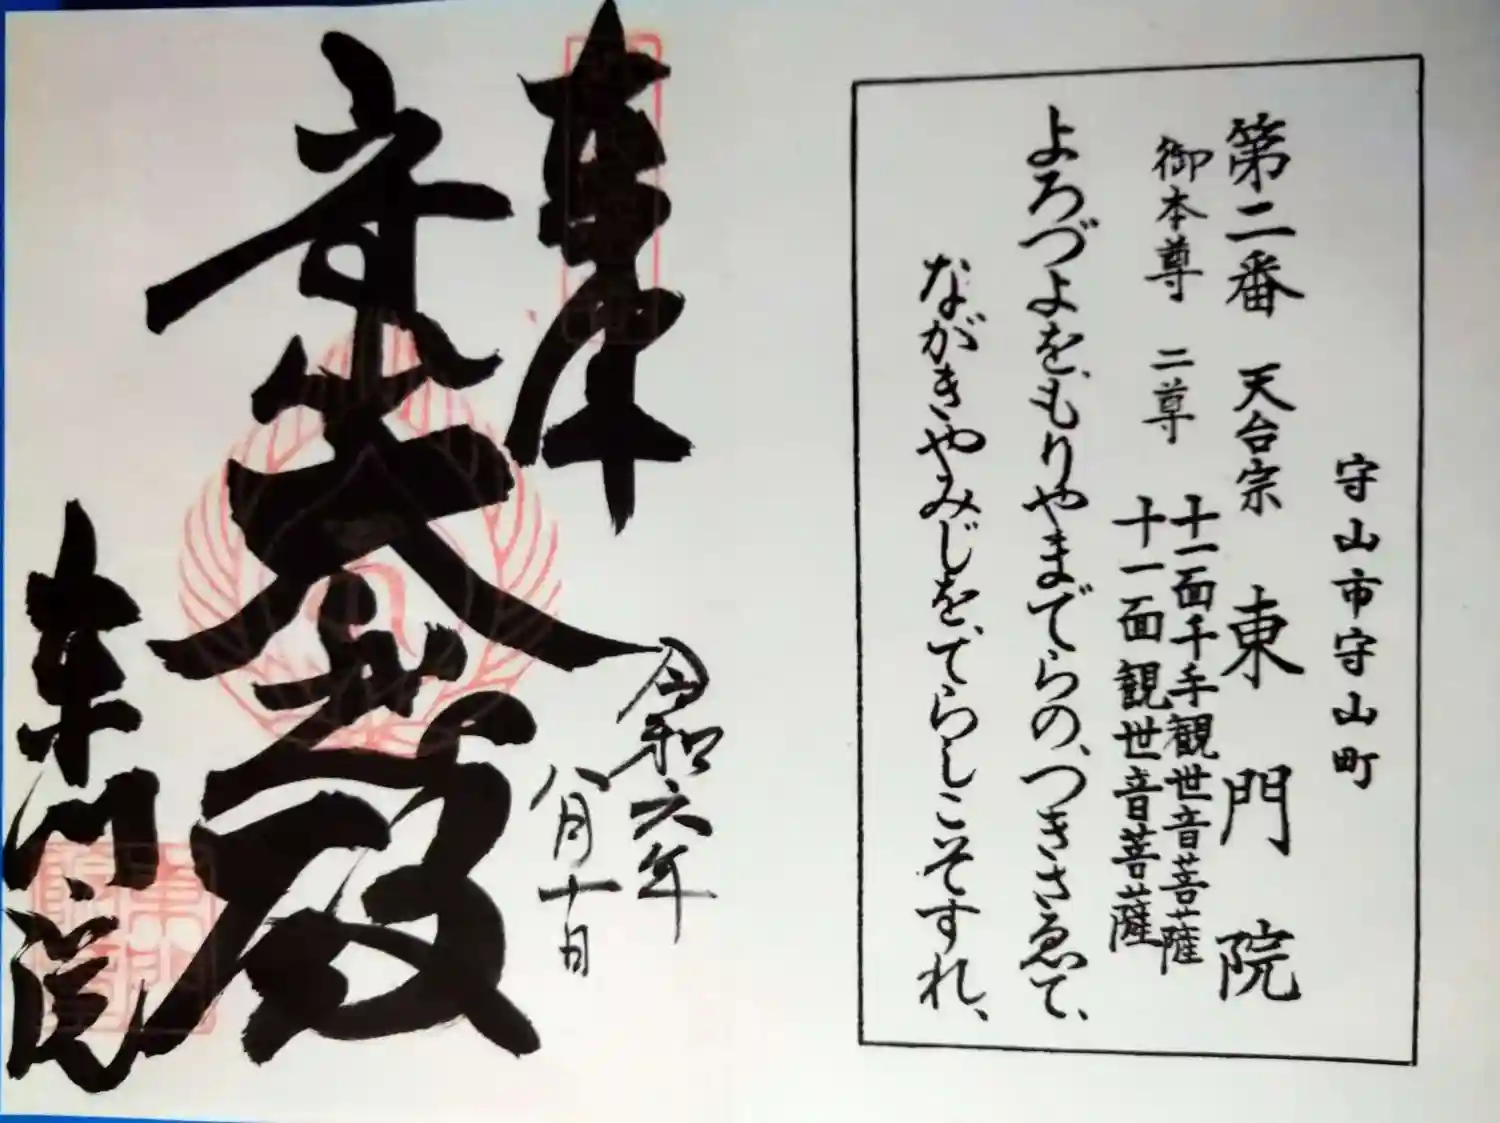 守山市守山町
第二番 天台宗 東門院
御本尊 二尊 十一面千手観世音菩薩
十一面観世音菩薩
よろづよを、もりやまでらの、つきさゑて、
ながきやみじを、てらしこそすれ、
奉拝
令和六年
八月十日
大悲殿
東門院